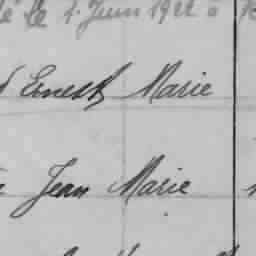 le 1 Juin 1922 à
Ernest Marie
Jean Marie